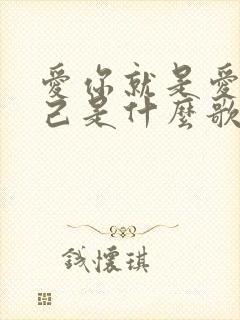 愛你就是愛
己是什麼歌
錢懷琪